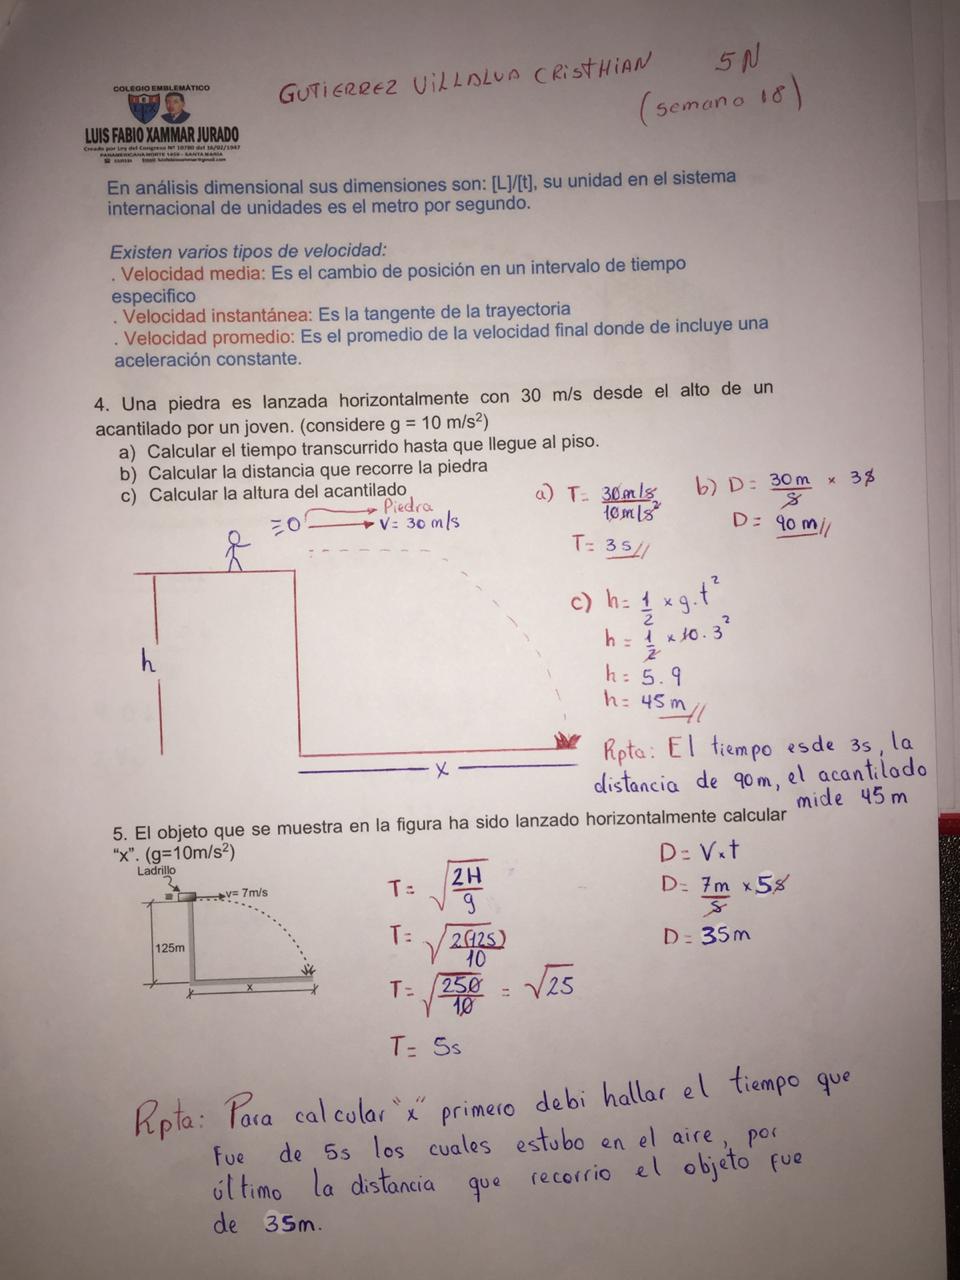 GUTIERREZ VILLALVA CRISTHIAN 5N
(semana 18)
COLEGIO EMBLEMÁTICO
LUIS FABIO XAMMAR JURADO
Creado por Ley del Congreso Nº 10780 del 16/02/1947
PANAMERICANA NORTE 1459 - SANTA MARIA
En análisis dimensional sus dimensiones son: [L]/[t], su unidad en el sistema
internacional de unidades es el metro por segundo.
Existen varios tipos de velocidad:
. Velocidad media: Es el cambio de posición en un intervalo de tiempo
especifico
. Velocidad instantánea: Es la tangente de la trayectoria
. Velocidad promedio: Es el promedio de la velocidad final donde de incluye una
aceleración constante.
4. Una piedra es lanzada horizontalmente con 30 m/s desde el alto de un
acantilado por un joven. (considere g = 10 m/s²)
a) Calcular el tiempo transcurrido hasta que llegue al piso.
b) Calcular la distancia que recorre la piedra
c) Calcular la altura del acantilado
Piedra
V= 30 m/s
h
x
a) T= 30m/s / 10m/s²
T= 3s//
b) D= 30m/s × 3s
D= 90m//
c) h= 1/2 × g.t²
h= 1/2 × 10.3²
h= 5.9
h= 45m//
Rpta: El tiempo esde 3s, la
distancia de 90m, el acantilado
mide 45m
5. El objeto que se muestra en la figura ha sido lanzado horizontalmente calcular
“x”. (g=10m/s²)
Ladrillo
v= 7m/s
125m
x
T= √2H/g
T= √2(125)/10
T= √250/10 = √25
T= 5s
D= V×t
D= 7m/s ×5s
D= 35m
Rpta: Para calcular "x" primero debi hallar el tiempo que
fue de 5s los cuales estubo en el aire, por
último la distancia que recorrio el objeto fue
de 35m.